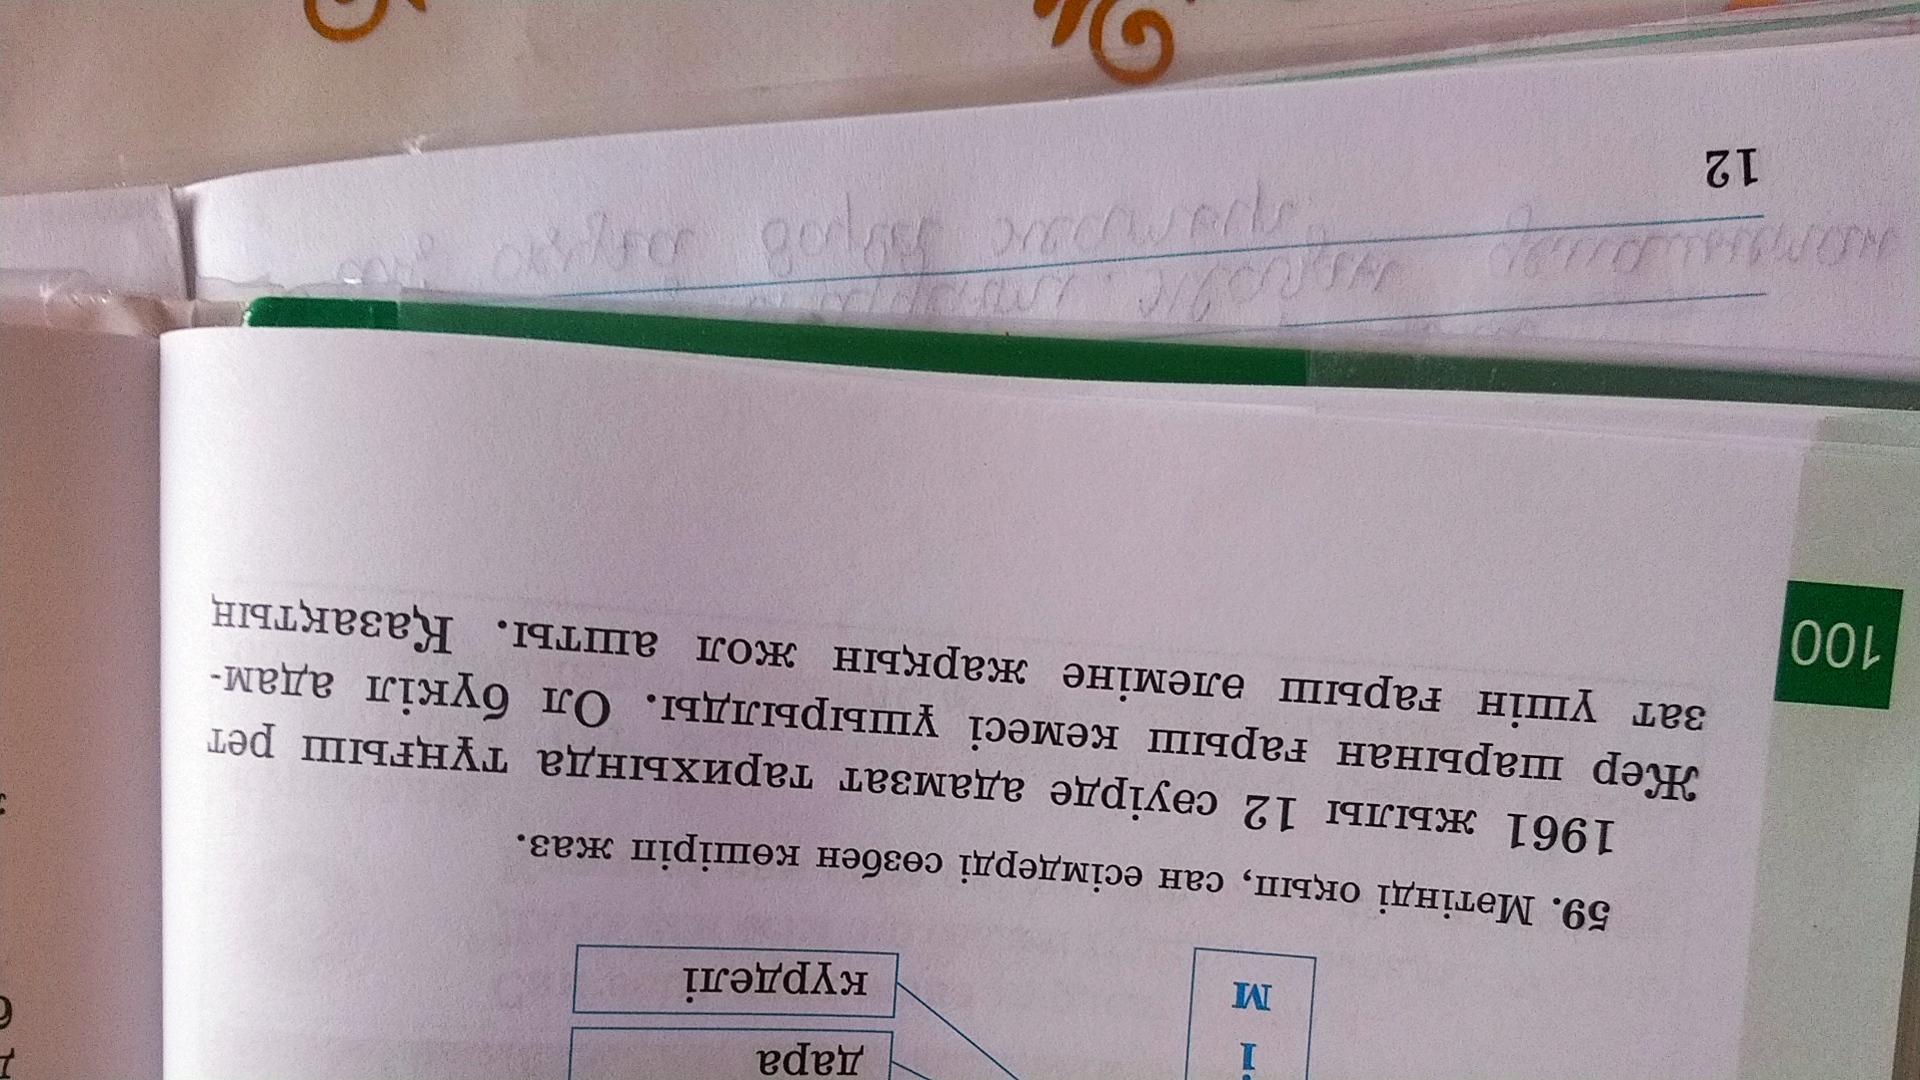 і
м
дара
күрделі
59. Мәтінді оқып, сан есімдерді сөзбен көшіріп жаз.
1961 жылы 12 сәуірде адамзат тарихында тұңғыш рет
Жер шарынан ғарыш кемесі ұшырылды. Ол бүкіл адам-
зат үшін ғарыш әлеміне жарқын жол ашты. Қазақтың
100
12